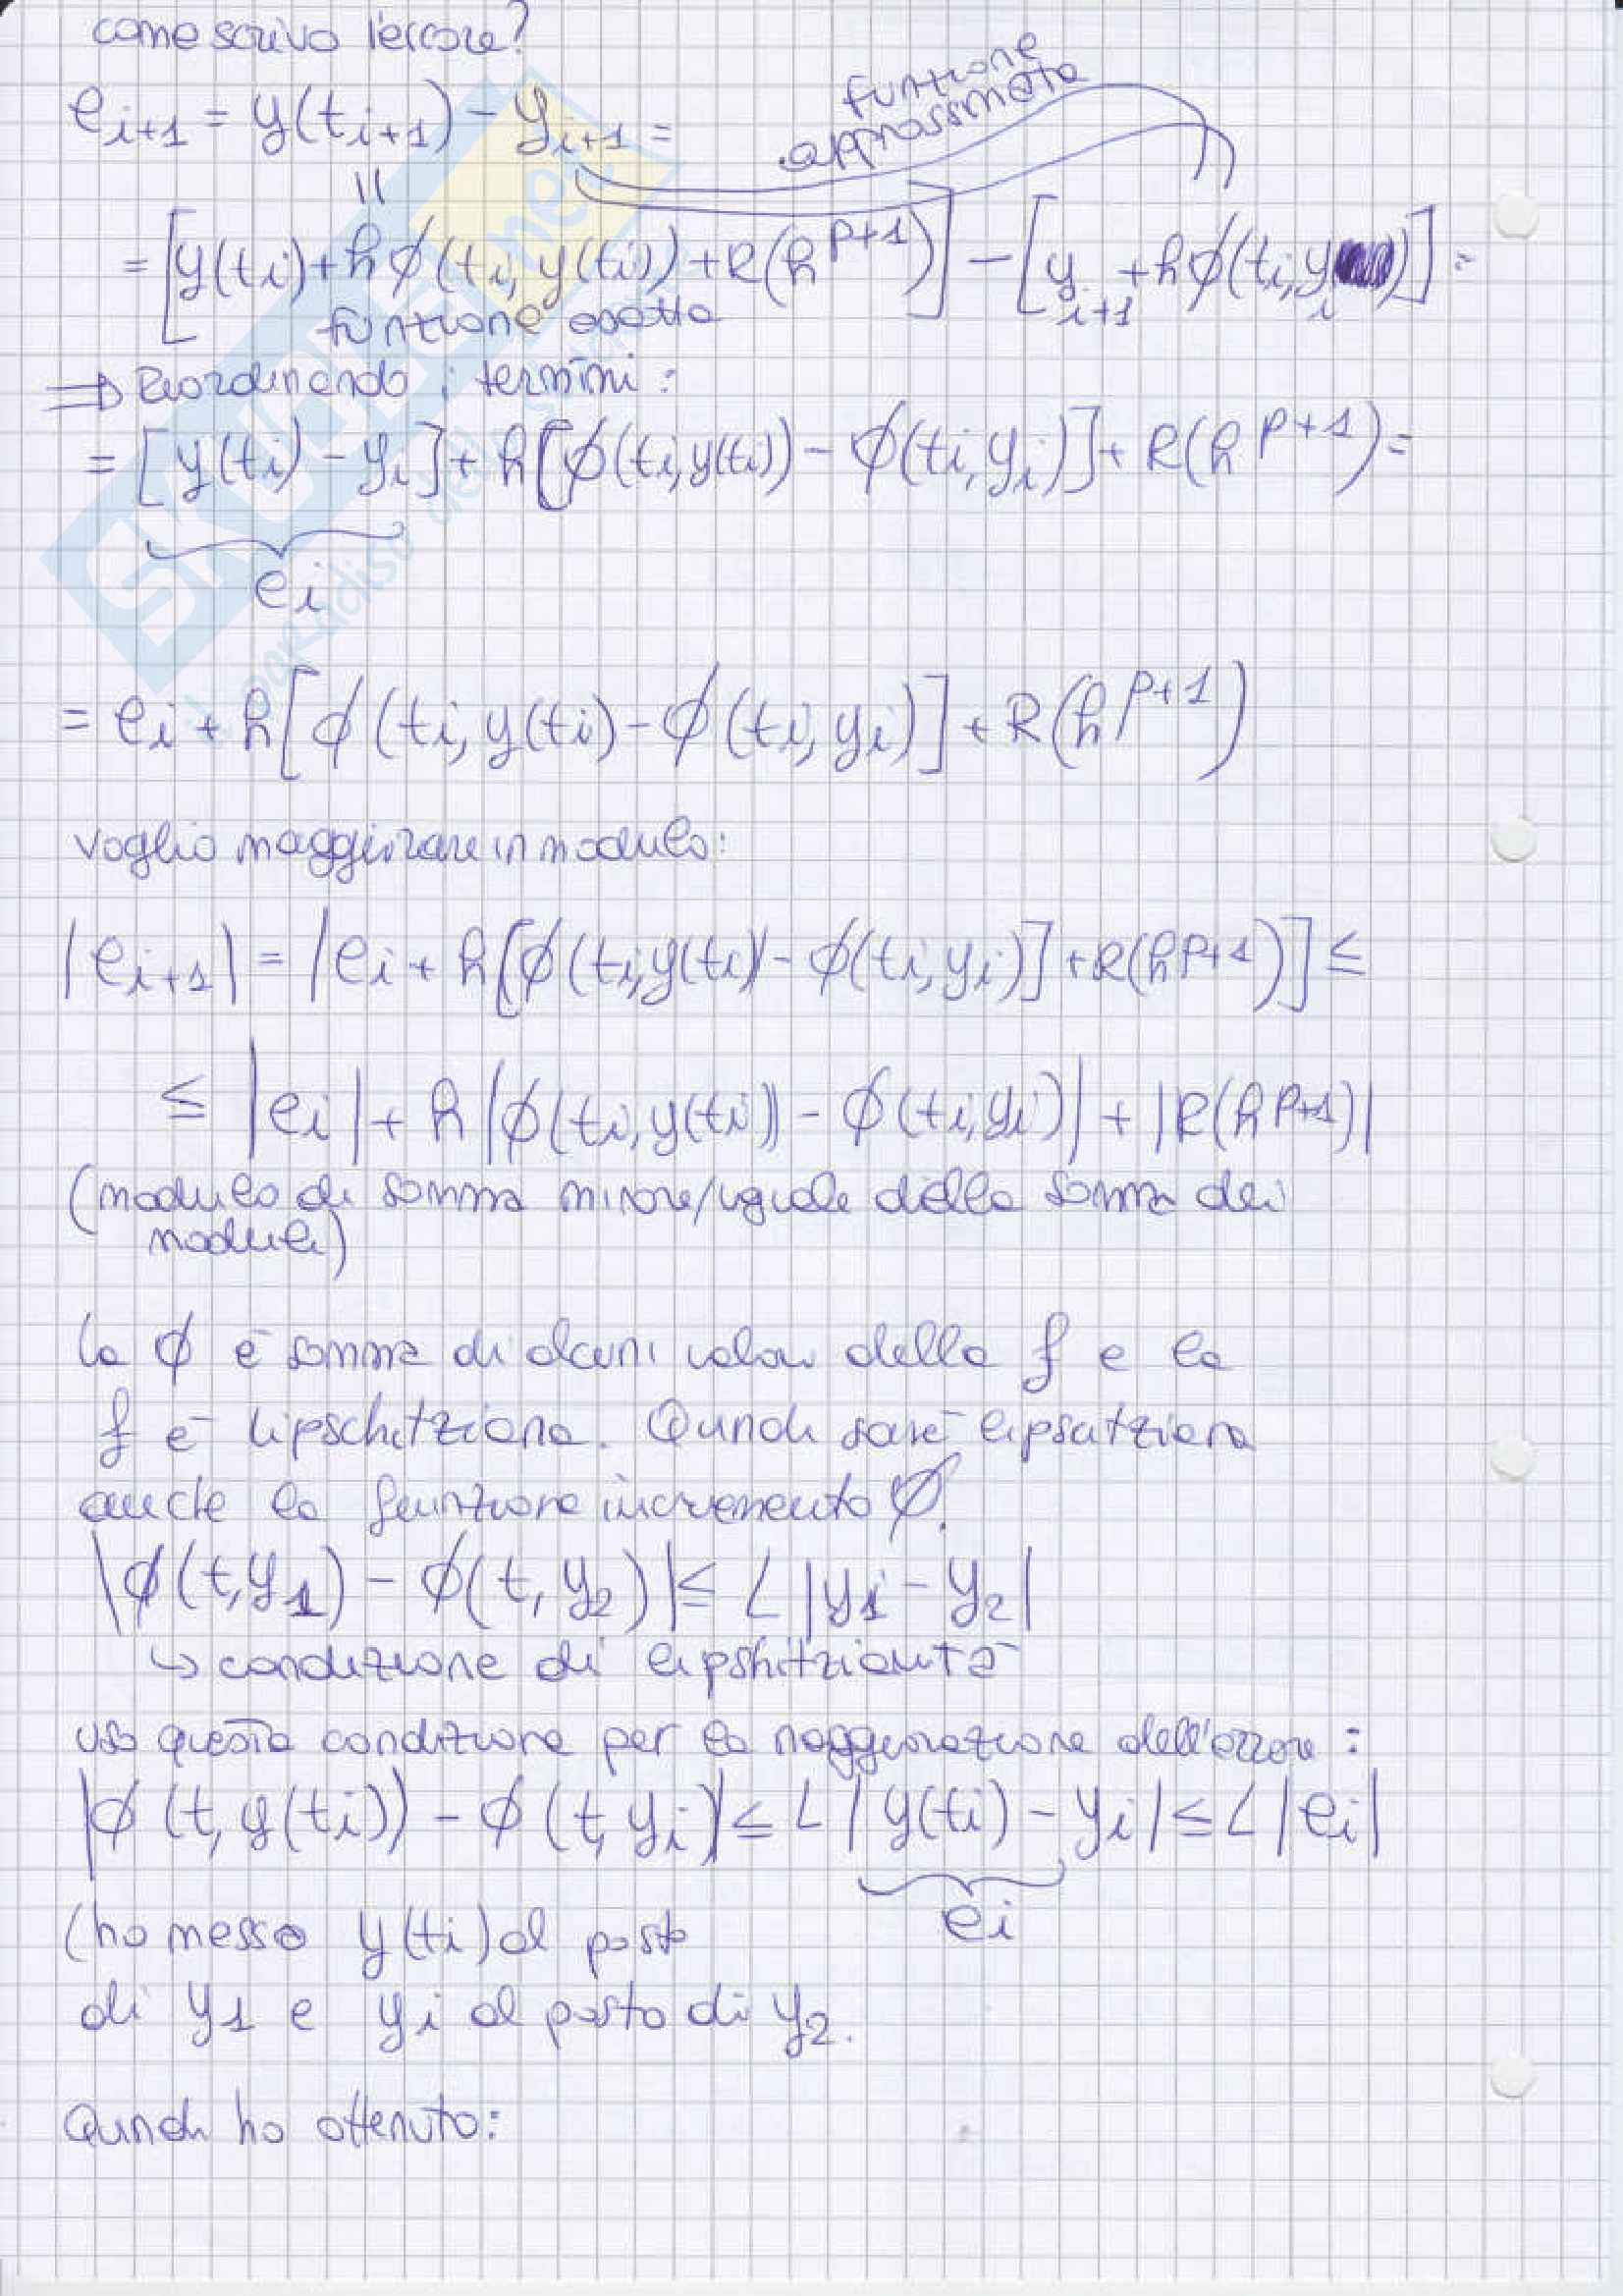 come scrivo l'errore?
e_{i+1} = y(t_{i+1}) - y_{i+1} =
funzione
approssimata
= [y(t_i) + hφ(t_i, y(t_i)) + R(h^{p+1})] - [y_{i+1} + hφ(t_i, y_i)] =
funzione esatta
⇒ Riordinando i termini:
= [y(t_i) - y_i] + h[φ(t_i, y(t_i)) - φ(t_i, y_i)] + R(h^{p+1}) =
e_i
= e_i + h[φ(t_i, y(t_i) - φ(t_i, y_i)] + R(h^{p+1})
voglio maggiorare in modulo:
|e_{i+1}| = |e_i + h[φ(t_i, y(t_i)) - φ(t_i, y_i)] + R(h^{p+1})] ≤
≤ |e_i| + h|φ(t_i, y(t_i)) - φ(t_i, y_i)| + |R(h^{p+1})|
(modulo di somma minore/uguale della somma dei
moduli)
la φ è somma di alcuni valori della f e la
f è lipschitziana. Quindi sarà lipscitziana
anche la funzione incremento φ.
|φ(t, y_1) - φ(t, y_2)| ≤ L |y_1 - y_2|
↳ condizione di lipshitzianità
uso questa condizione per la maggiorazione dell'errore:
|φ(t, y(t_i)) - φ(t, y_i)| ≤ L |y(t_i) - y_i| ≤ L |e_i|
e_i
(ho messo y(t_i) al posto
di y_1 e y_i al posto di y_2.
Quindi ho ottenuto: